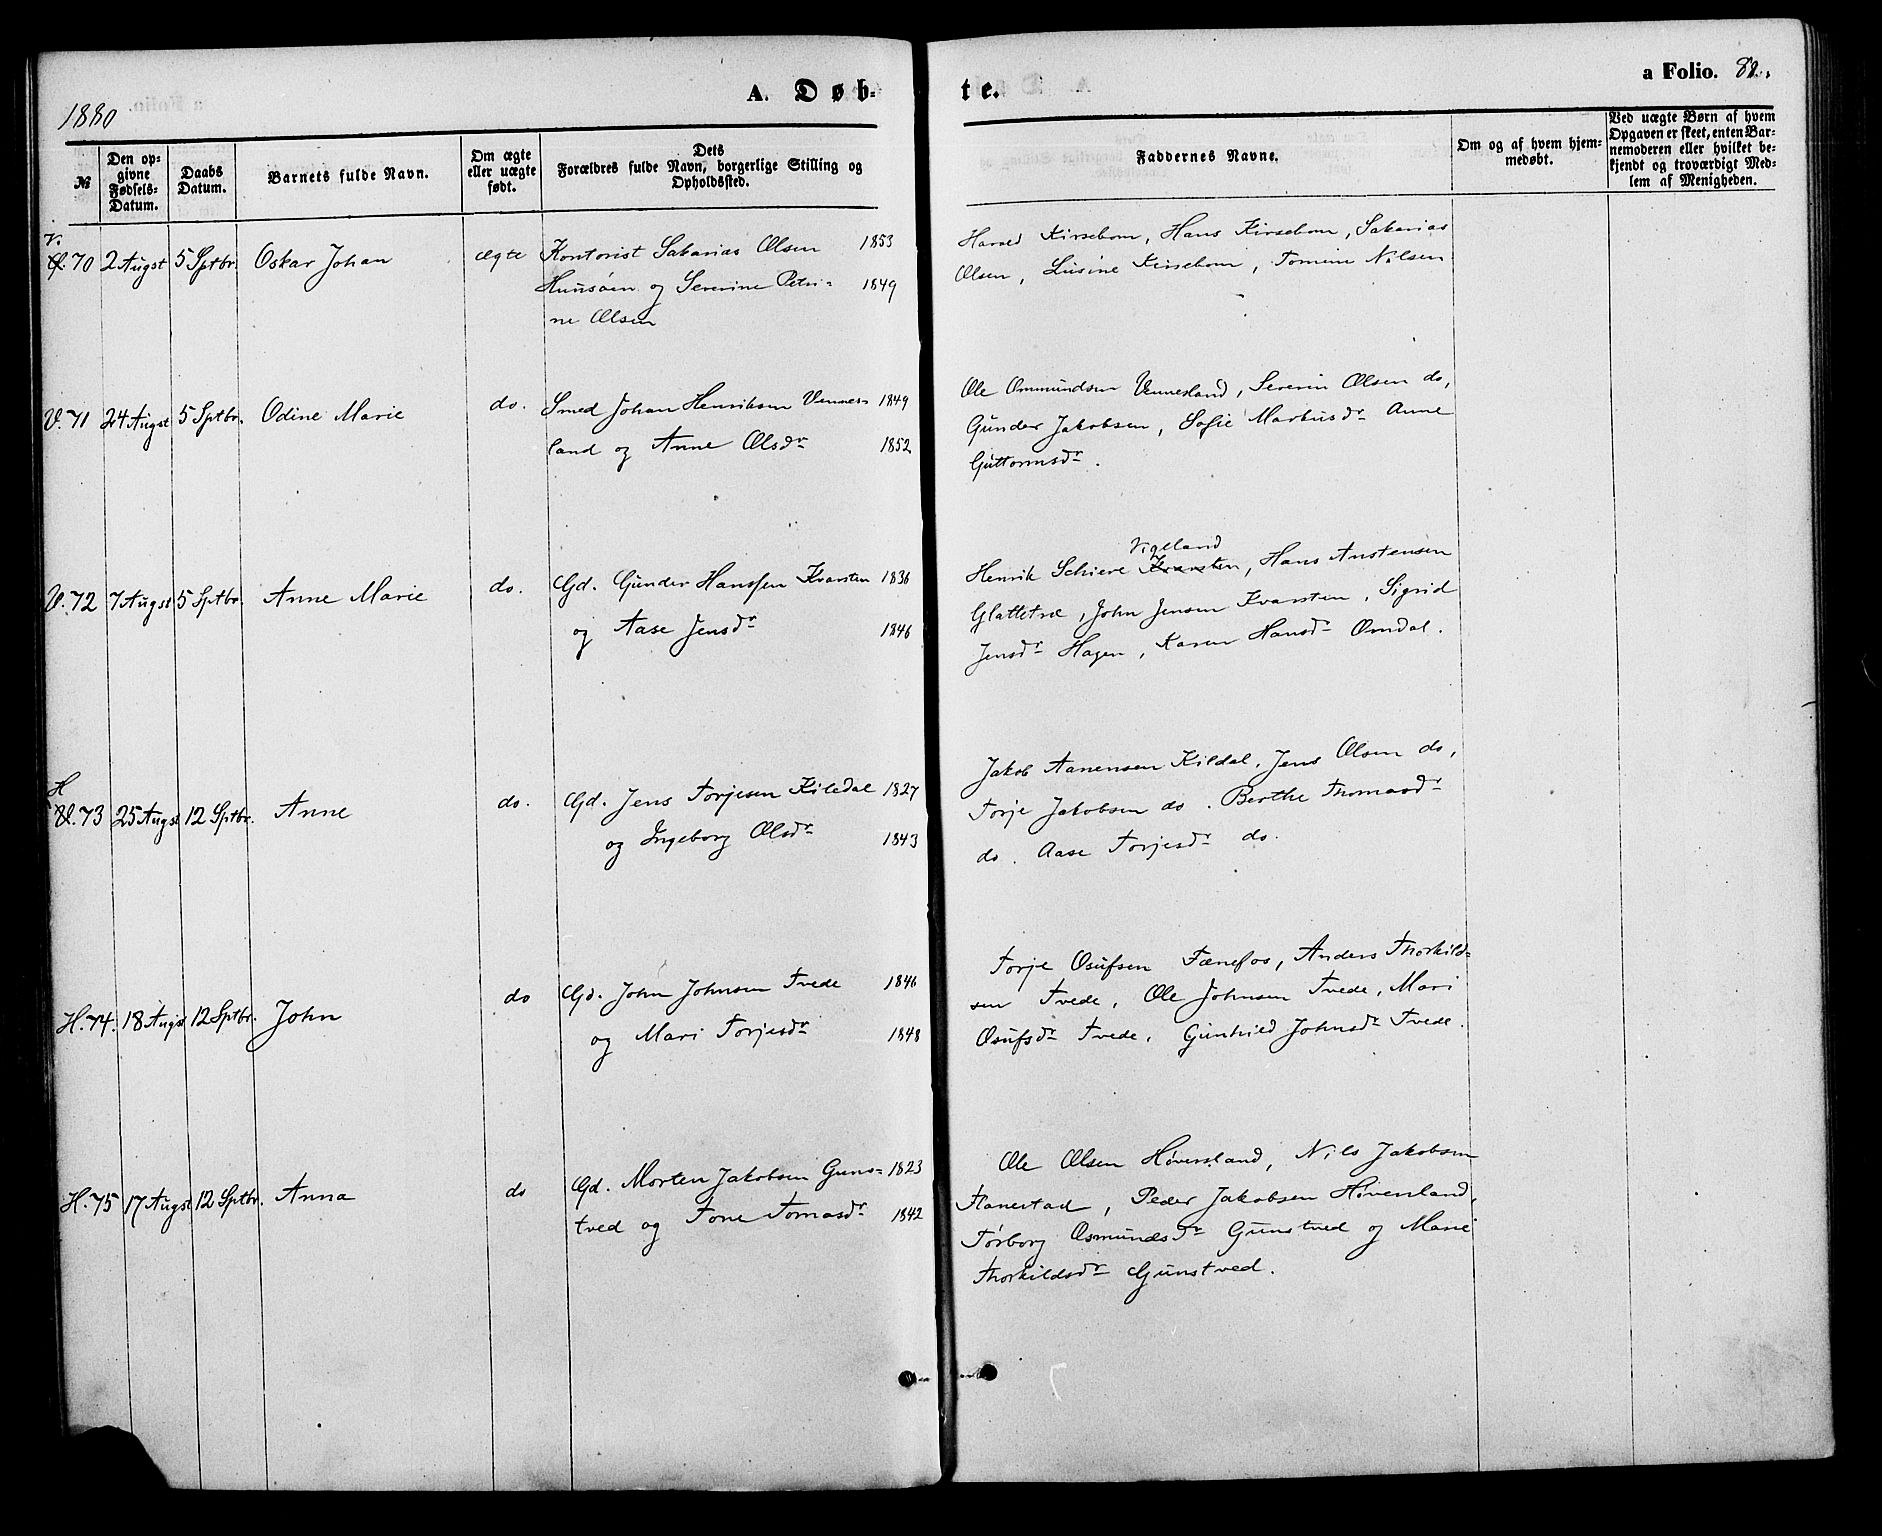 1880
A. Døb-
te.
a Folio. 82.
№
Den opgivne Fødsels-Datum.
Daabs Datum.
Barnets fulde Navn.
Om ægte eller uægte født.
Dets Forældres fulde Navn, borgerlige Stilling og Opholdssted.
Faddernes Navne.
Om og af hvem hjemmedøbt.
Ved uægte Børn af hvem Opgaven er skeet, enten Barnemoderen eller hvilket bekjendt og troværdigt Medlem af Menigheden.
V. 70 2 Augst 5 Sptbr. Oskar Johan ægte Kontorist Sakarias Olsen 1853
Huusøen og Severine Petri- 1849
ne Olsen
Harald Kirsebom, Hans Kirsebom, Sakarias
Olsen, Lusine Kirsebom, Tomine Nilsen
V. 71 24 Augst 5 Sptbr. Odine Marie do. Smed Johan Henriksen Vennes- 1849
land og Anne Olsdr 1852
Ole Ommundsen Vennesland, Severin Olsen do,
Gunder Jakobsen, Sofie Markusdr Anne
Guttormsdr.
V. 72 7 Augst 5 Sptbr. Anne Marie do. Gd. Gunder Hanssen Kvarsten 1836
og Aase Jensdr 1846
Vigeland
Henrik Schiere Kvarsten, Hans Anstensen
Glattetre, John Jensen Kvarsten, Sigrid
Jensdr Hagen, Karen Hansdr Omdal.
H. 73 25 Augst 12 Sptbr. Anne do. Gd. Jens Torjesen Kiledal 1827
og Ingeborg Olsdr 1843
Jakob Aanensen Kildal, Jens Olsen do,
Torje Jakobsen do. Berthe Thomasdr
do. Aase Torjesdr do.
H. 74. 18 Augst 12 Sptbr. John do Gd. John Johnsen Tvede 1846
og Mari Torjesdr 1848
Torje Osufsen Fænefos, Anders Thorkild-
sen Tvede, Ole Johnsen Tvede, Mari
Osufsdr Tvede, Gunhild Johnsdr Tvede.
H. 75 17 Augst 12 Sptbr. Anna do Gd. Morten Jakobsen Guns- 1823
tved og Tone Tomasdr 1842
Ole Olsen Høversland, Nils Jakobsen
Flanestad, Peder Jakobsen Høversland,
Tørborg Osmundsdr Gunstved og Marie
Thorkildsdr Gunstved.